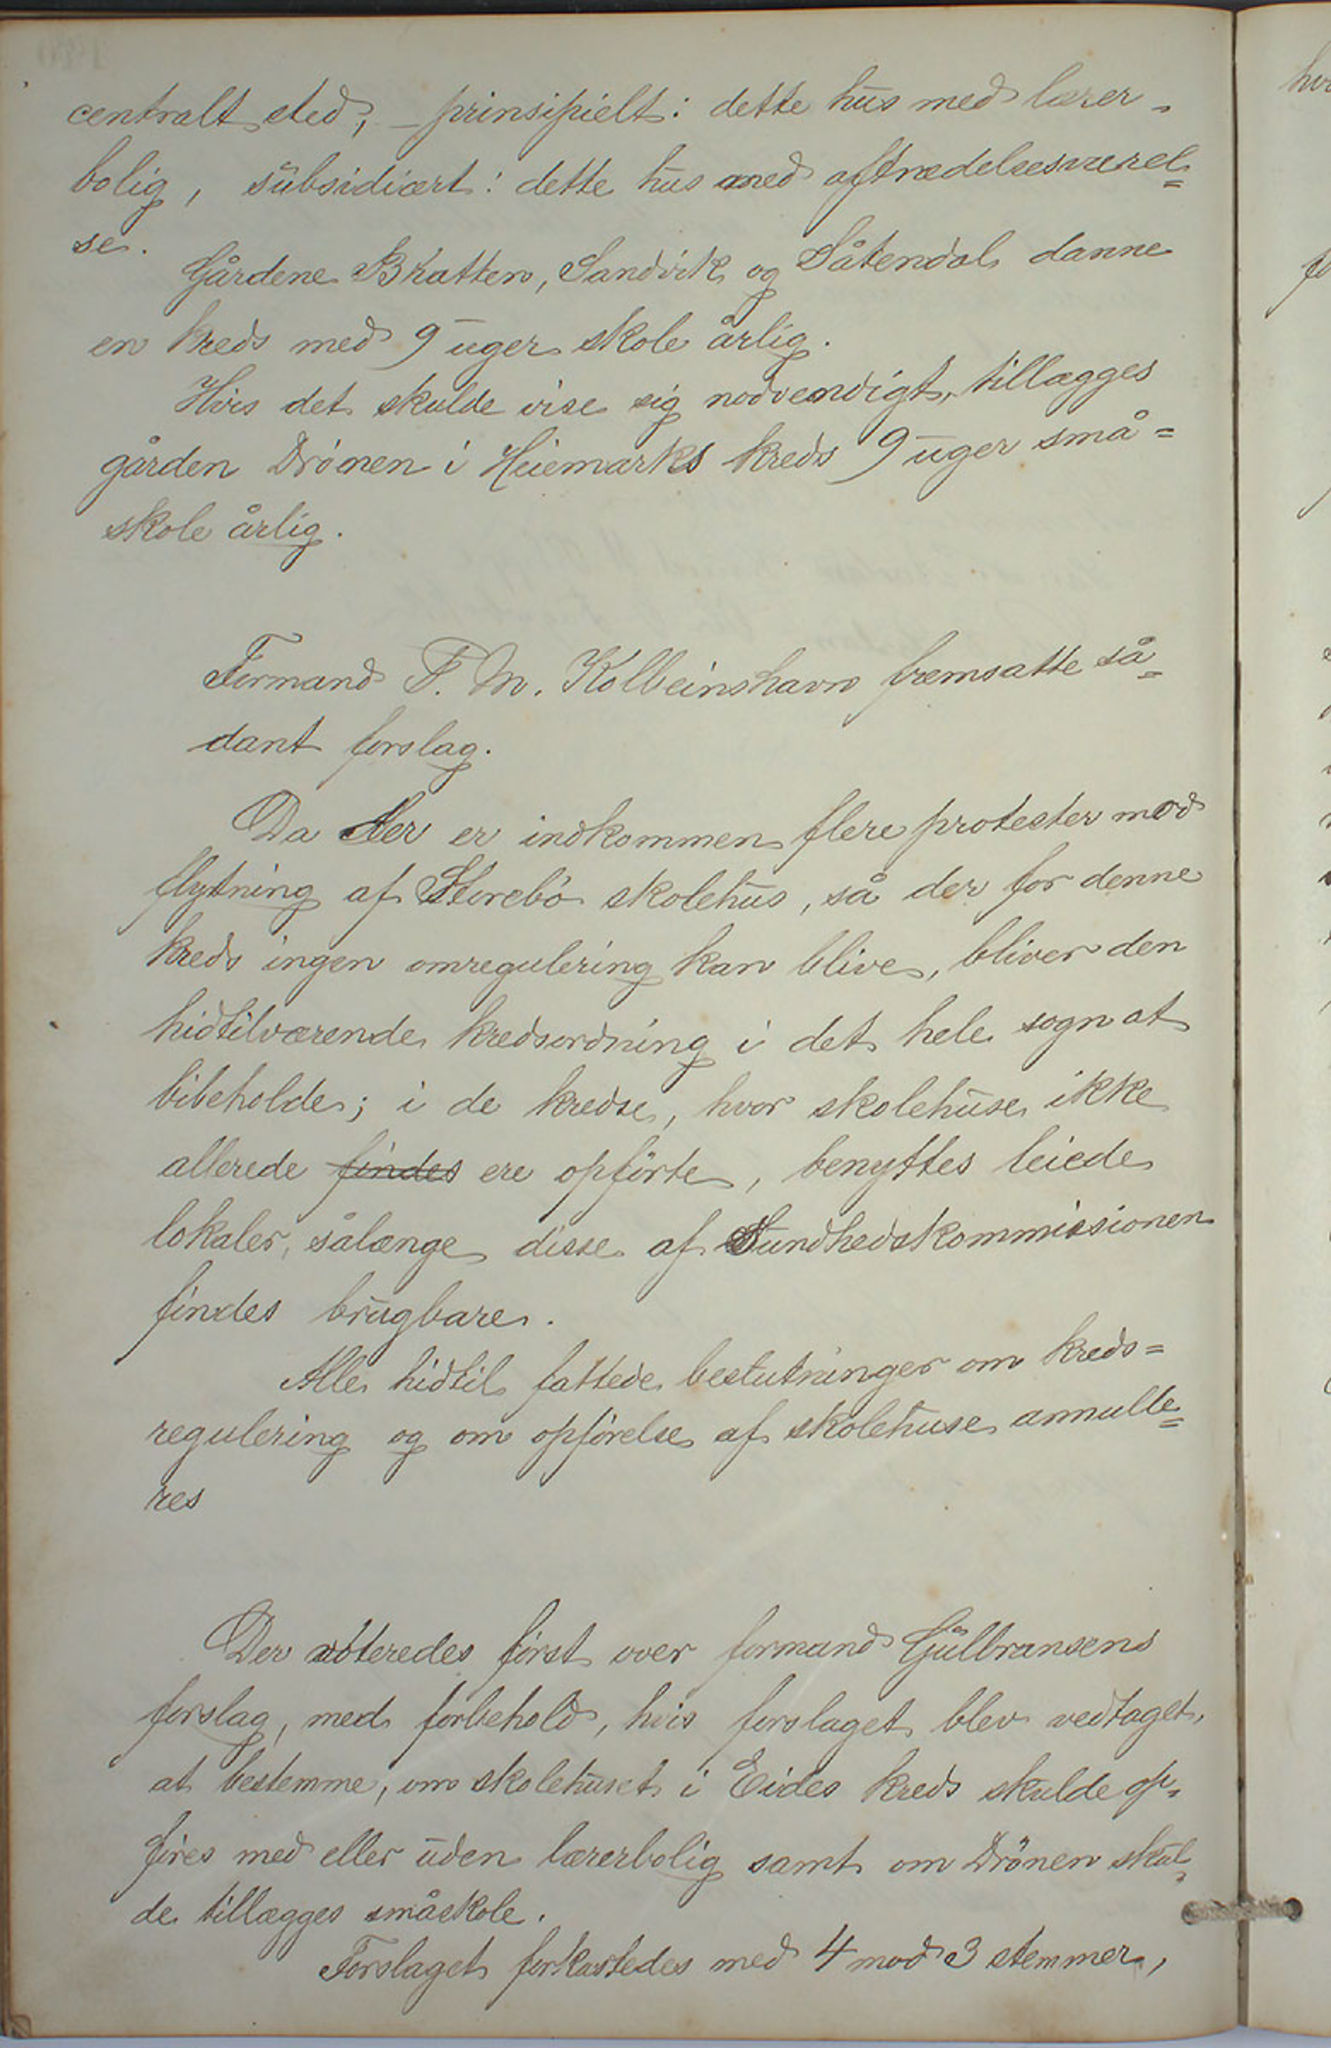 centralt sted, – prinsipielt: dette hus med lærer-
bolig, subsidiært: dette hus med aftrædelsesværel=
se.
Gårdene Bratten, Sandvik og Såtendal danne
en kreds med 9 uger skole årlig.
Hvis det skulde vise sig nødvendigt, tillægges
gården Drönen i Hüemarks kreds 9 uger små=
skole årlig.
Formand F. M. Kolbeinshavn fremsatte så=
dant forslag.
Da der er indkommen flere protester mod
flytning af Storebö skolehus, så der for denne
kreds ingen omregulering kan blive, bliver den
hidtilværende kredsordning i det hele sogn at
bibeholde; i de kredse, hvor skolehuse ikke
allerede findes ere opførte, benyttes leiede
lokaler, sålænge disse af Sundhedskommissionen
findes brugbare.
Alle hidtil fattede beslutninger om kreds=
regulering og om opførelse af skolehuse annulle=
res
Der voteredes først over formand Gulbransens
forslag, med forbehold, hvis forslaget blev vedtaget,
at bestemme, om skolehuset i Eides kreds skulde op-
føres med eller uden lærerbolig samt om Drönen skul=
de tillægges småskole.
Forslaget forkastedes med 4 mod 3 stemmer,